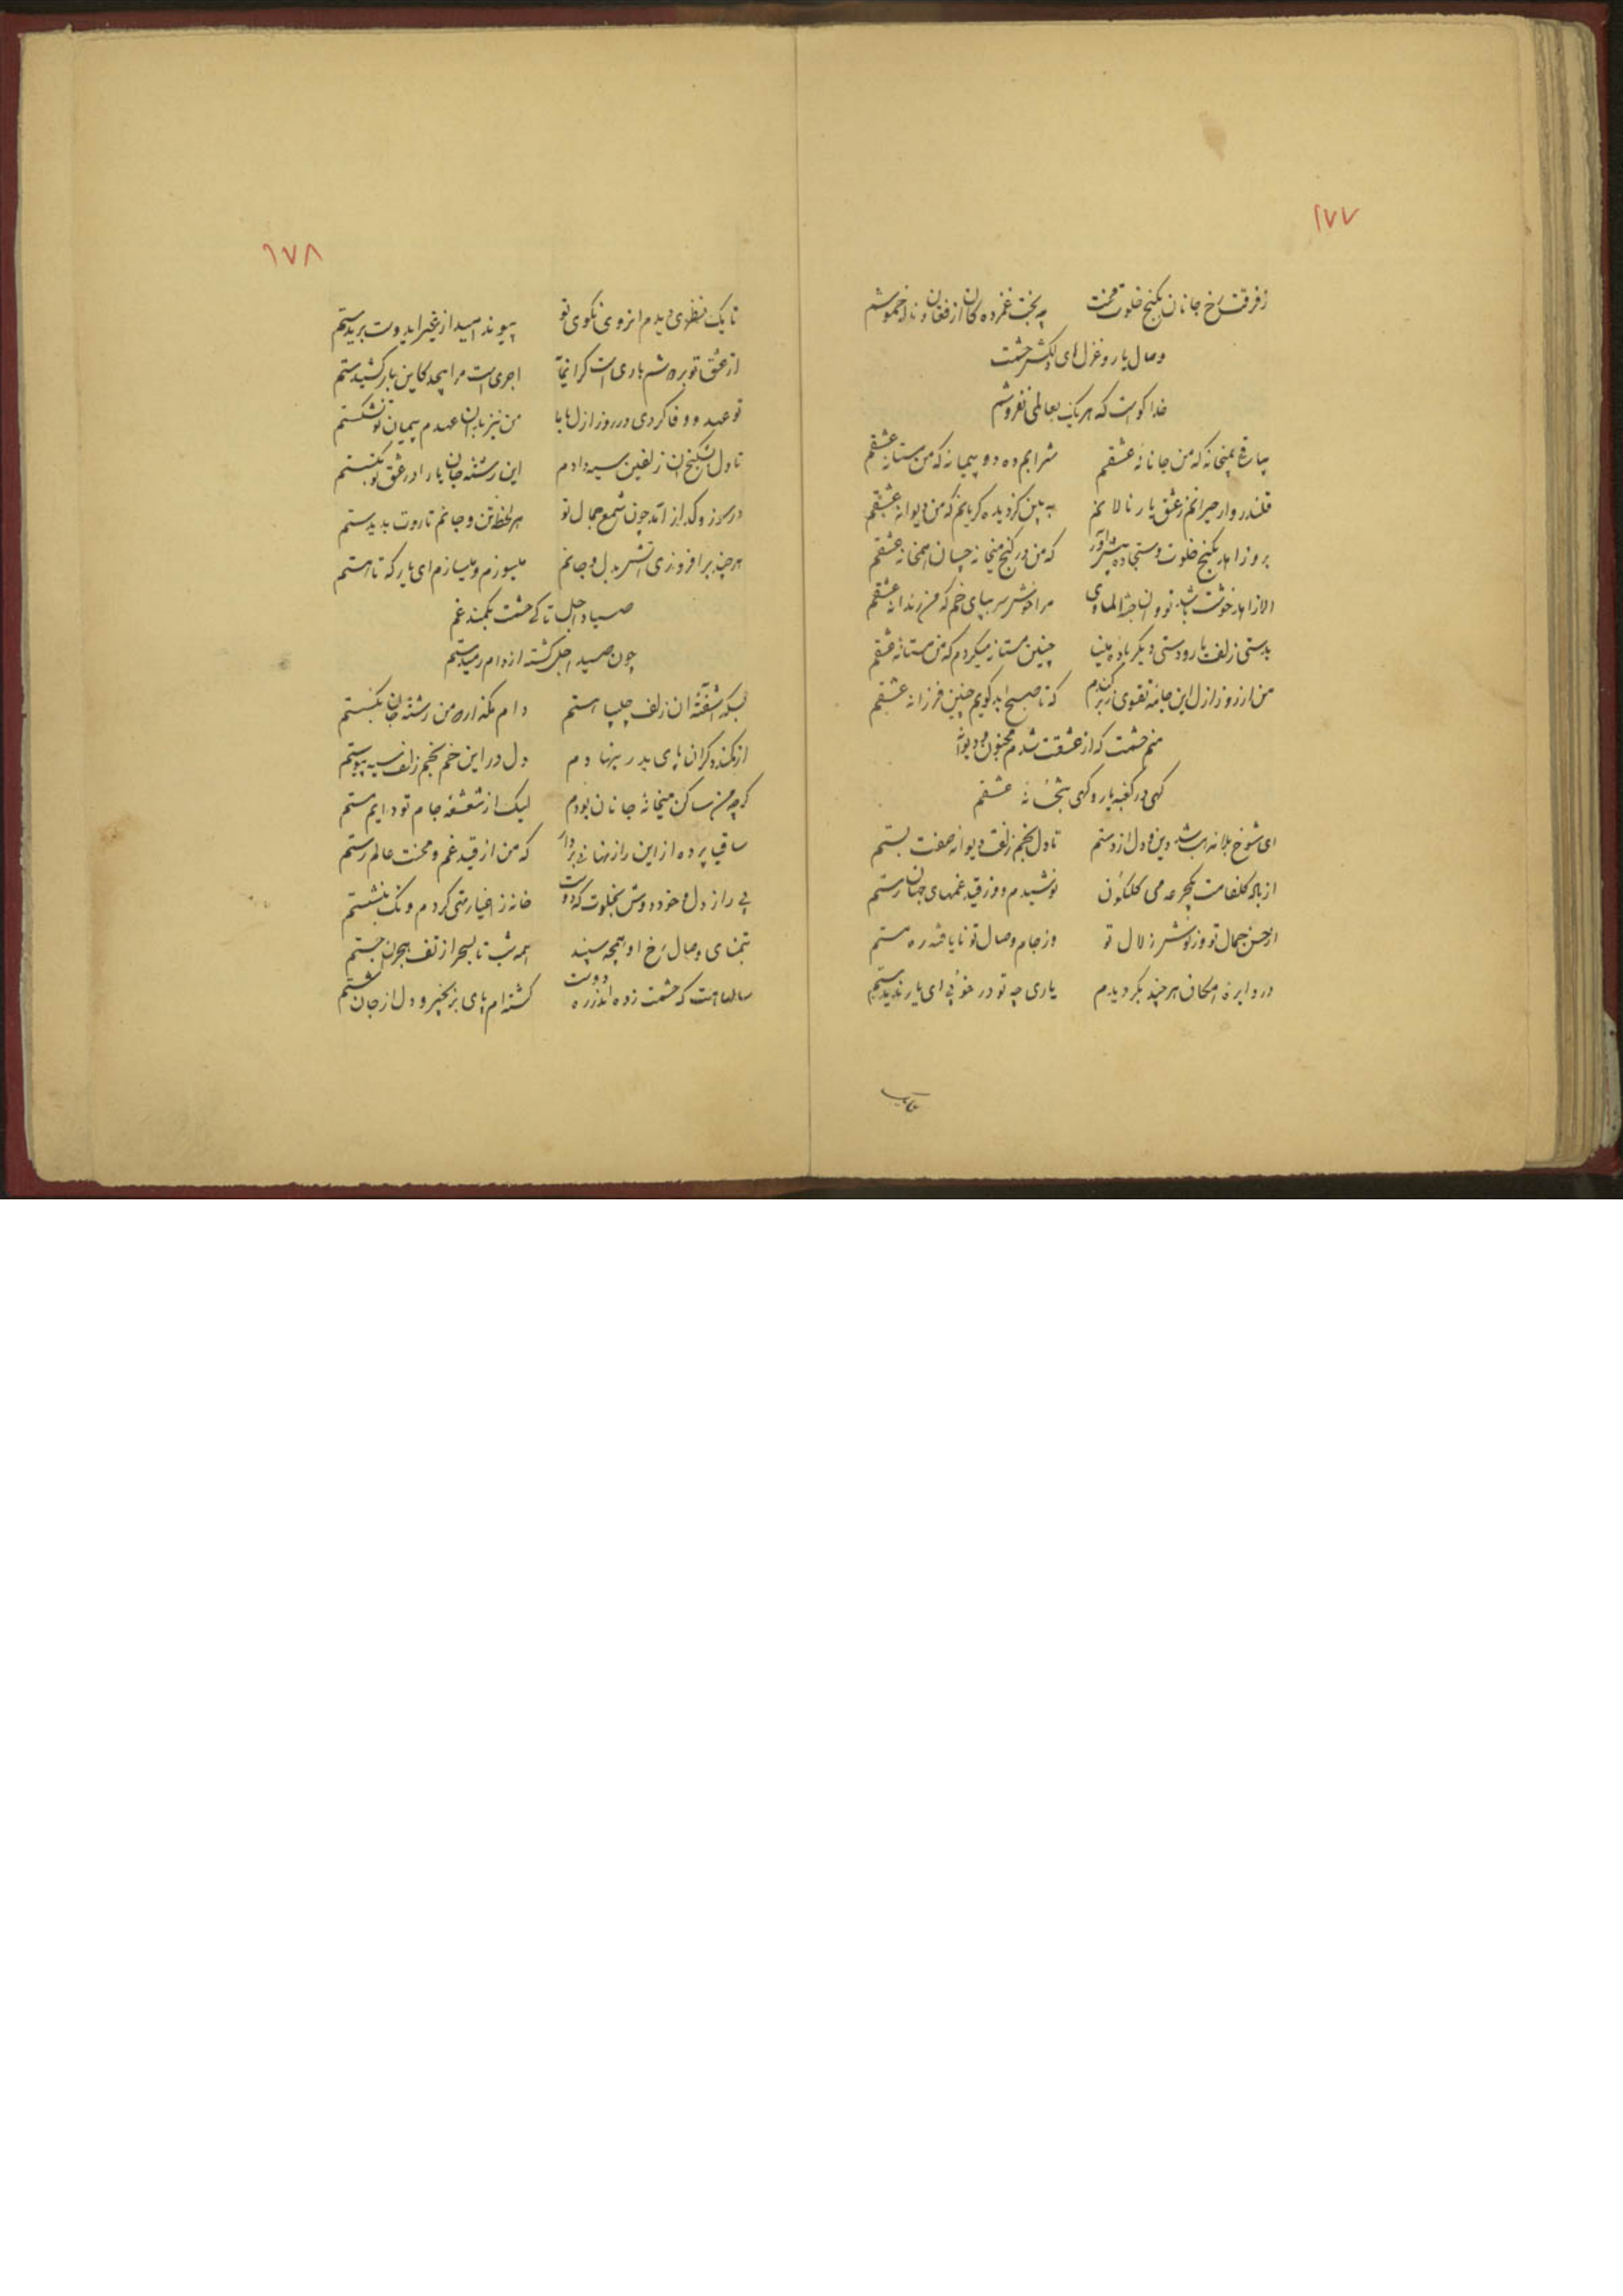 ۱۷۷
ز فرقت رخ جانان بکنج خلوت محنت چه بخت غمزده کان از فغان و ناله خموشم
وصال یار و غزل های دلکش حشمت
خدا کواست که هر یک بعالمی نفروشم
بیا رغ بمیخانه که من جانانه عشقم شرابم ده دو پیمانه که من مستانه عشقم
قلندروار حیرانم ز عشق یار نالانم به بین کردیده کریانم که من دیوانه عشقم
برو زاهد بکنج خلوت و سجاده پیش آور که من در کنج میخانه چسان همخانه عشقم
الا زاهد خوشت باشد تو و ان جنة الماوی مرا خوش سر بپای خم که من رندانه عشقم
بدستی زلف یار و دستی دیگر باده مینا چنین مستانه میکردم که من مستانه عشقم
من از روز ازل این جامه تقوی ز بر کندم که تا صبح ابد کویم چنین فرزانه عشقم
منم حشمت که از عشقت شدم مجنون و دیوانه
کهی در کعبه یار و کهی بتخانه عشقم
ای شوخ بلا شد دین و دل از دستم تا دل بخم زلفت دیوانه صفت بستم
از باده کلفامت یکجرعه می کلکون نوشیدم و وز قید غمهای جهان رستم
از حسن جمال تو وز نوش زلال تو وز جام وصال تو نایافته ره مستم
در دایره امکان هر چند بکردیدم یاری چه تو در خوبی ای یار ندیدستم
۱۷۸
تا یک نظری دیدم از روی نکوی تو پیوند امید از غیر ایدوست بریدستم
از عشق تو بر دوشم باری است کران اجری است مرا بیحد کاین بار کشیدستم
تو عهد و وفا کردی در روز ازل با ما من نیز بدان عهدم پیمان تو نشکستم
تا دل بشکنج ان زلفین سیه دادم این رشته جان یارا در عشق تو بکسستم
در سوز و کداز امد چون شمع جمال تو هر لحظه تن و جانم تا روت بدیدستم
هر چند برافروزی اتش بدل و جانم میسوزم و میسازم ای یار که تا هستم
صیاد اجل تا کی حشمت بکمند غم
چون صید اجل کشته از دام رمیدستم
بسکه اشفته ان زلف چلیپا هستم دام مکذار که من رشته جان بکسستم
از کمند دکران پای بدر بنهادم دل در این خم بخم زلف سیه پیوستم
کر چه من ساکن میخانه جانان بودم لیک از شعشعه جام تو دایم مستم
ساقی پرده از این راز نهانی بردار که من از قید غم و محنت عالم رستم
پی راز دل خود دوش بخلوت که دوست خانه ز اغیار تهی کردم و تک بنشستم
بتمنای وصال رخ او همچه سپند همه شب تا بسحر از تف هجران جستم
سالها هست که حشمت زده اندر ره دوست کشته ام پای بزنجیر و دل از جان شستم